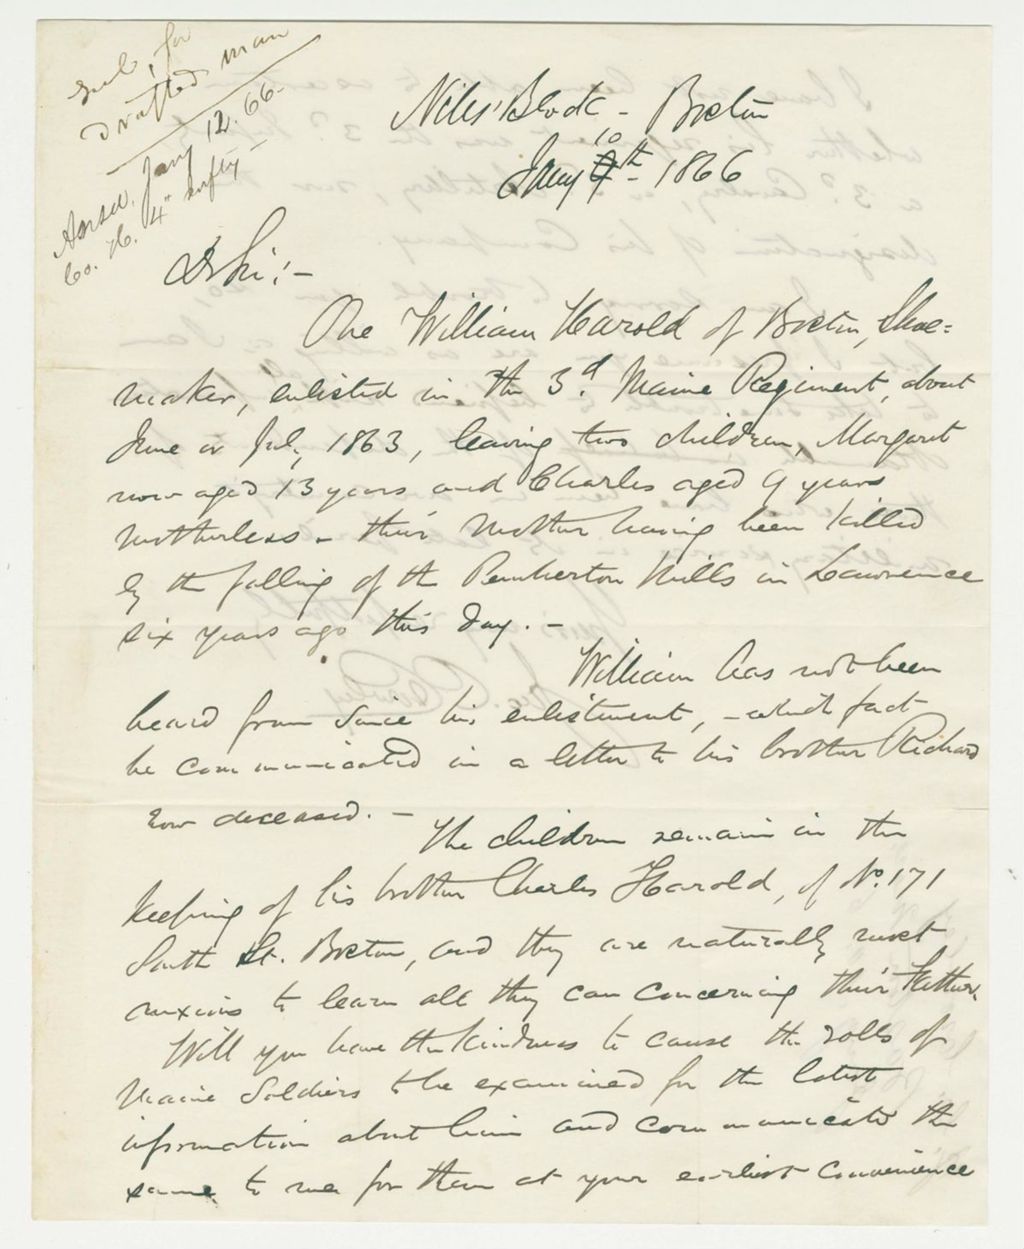 Sub. for
Drafted man
Ansd. Jany 12. 66.
Co. H. 4" Infty -
Niles' Block - Boston
Jany 10th 1866
Dr Sir:-
One William Harold of Boston, Shoe=
maker, enlisted in the 3d. Maine Regiment, about
June or July, 1863, leaving two children, Margaret
now aged 13 years and Charles aged 9 years
motherless - their mother having been killed
by the falling of the Pemberton Mills in Lawrence
six years ago this day. -
William has not been
heard from since his enlistment, - which fact
he communicated in a letter to his brother Richard
now deceased. -
The children remain in the
keeping of his brother Charles Harold, of No. 171
South St. Boston, and they are naturally most
anxious to learn all they can concerning their Father.
Will you have the kindness to cause the rolls of
Maine Soldiers to be examined for the latest
information about him and communicate the
same to me for them at your earliest convenience